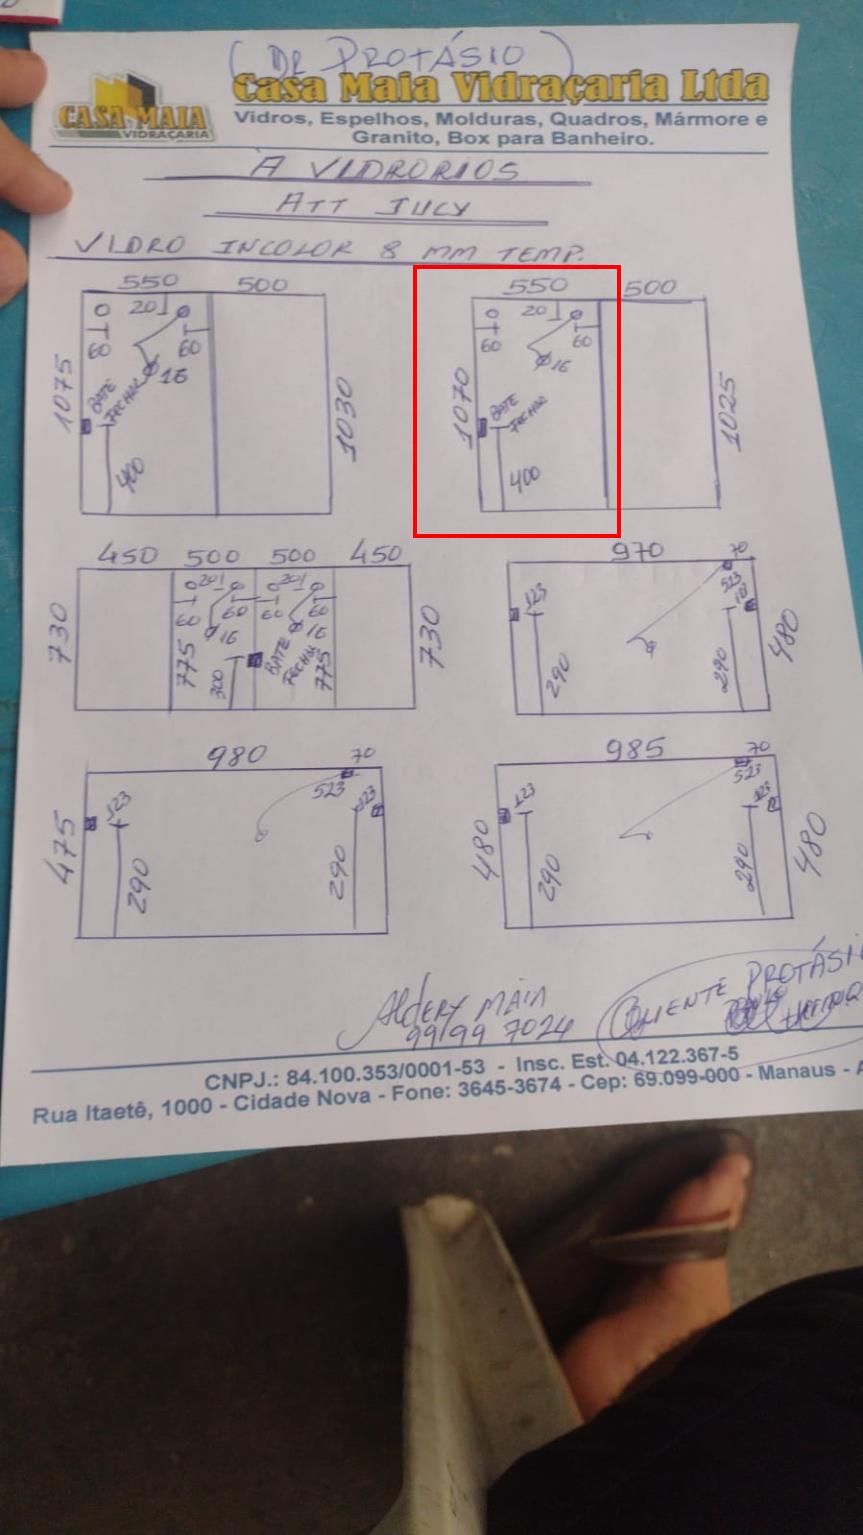 (DR PROTÁSIO)
CASA MAIA
VIDRAÇARIA
Casa Maia Vidraçaria Ltda
Vidros, Espelhos, Molduras, Quadros, Mármore e
Granito, Box para Banheiro.
A VIDRORIOS
ATT JUCY
VIDRO INCOLOR 8 MM TEMP.
550 500
20
60 60
16
1075
BATE
FECHAR
400
1030
550 500
20
60 60
16
1070
BATE
FECHAR
400
1025
450 500 500 450
20 20
60 60 60 60
16 16
730
775
300
BATE
FECHAR
775
730
970 70
523
123 123
290 290
480
980 70
523
123 123
475
290 290
985 70
523
123 123
480
290 290
480
ALDERY MAIA
99199 7024
CLIENTE PROTÁSIO
CNPJ.: 84.100.353/0001-53 - Insc. Est. 04.122.367-5
Rua Itaetê, 1000 - Cidade Nova - Fone: 3645-3674 - Cep: 69.099-000 - Manaus - A